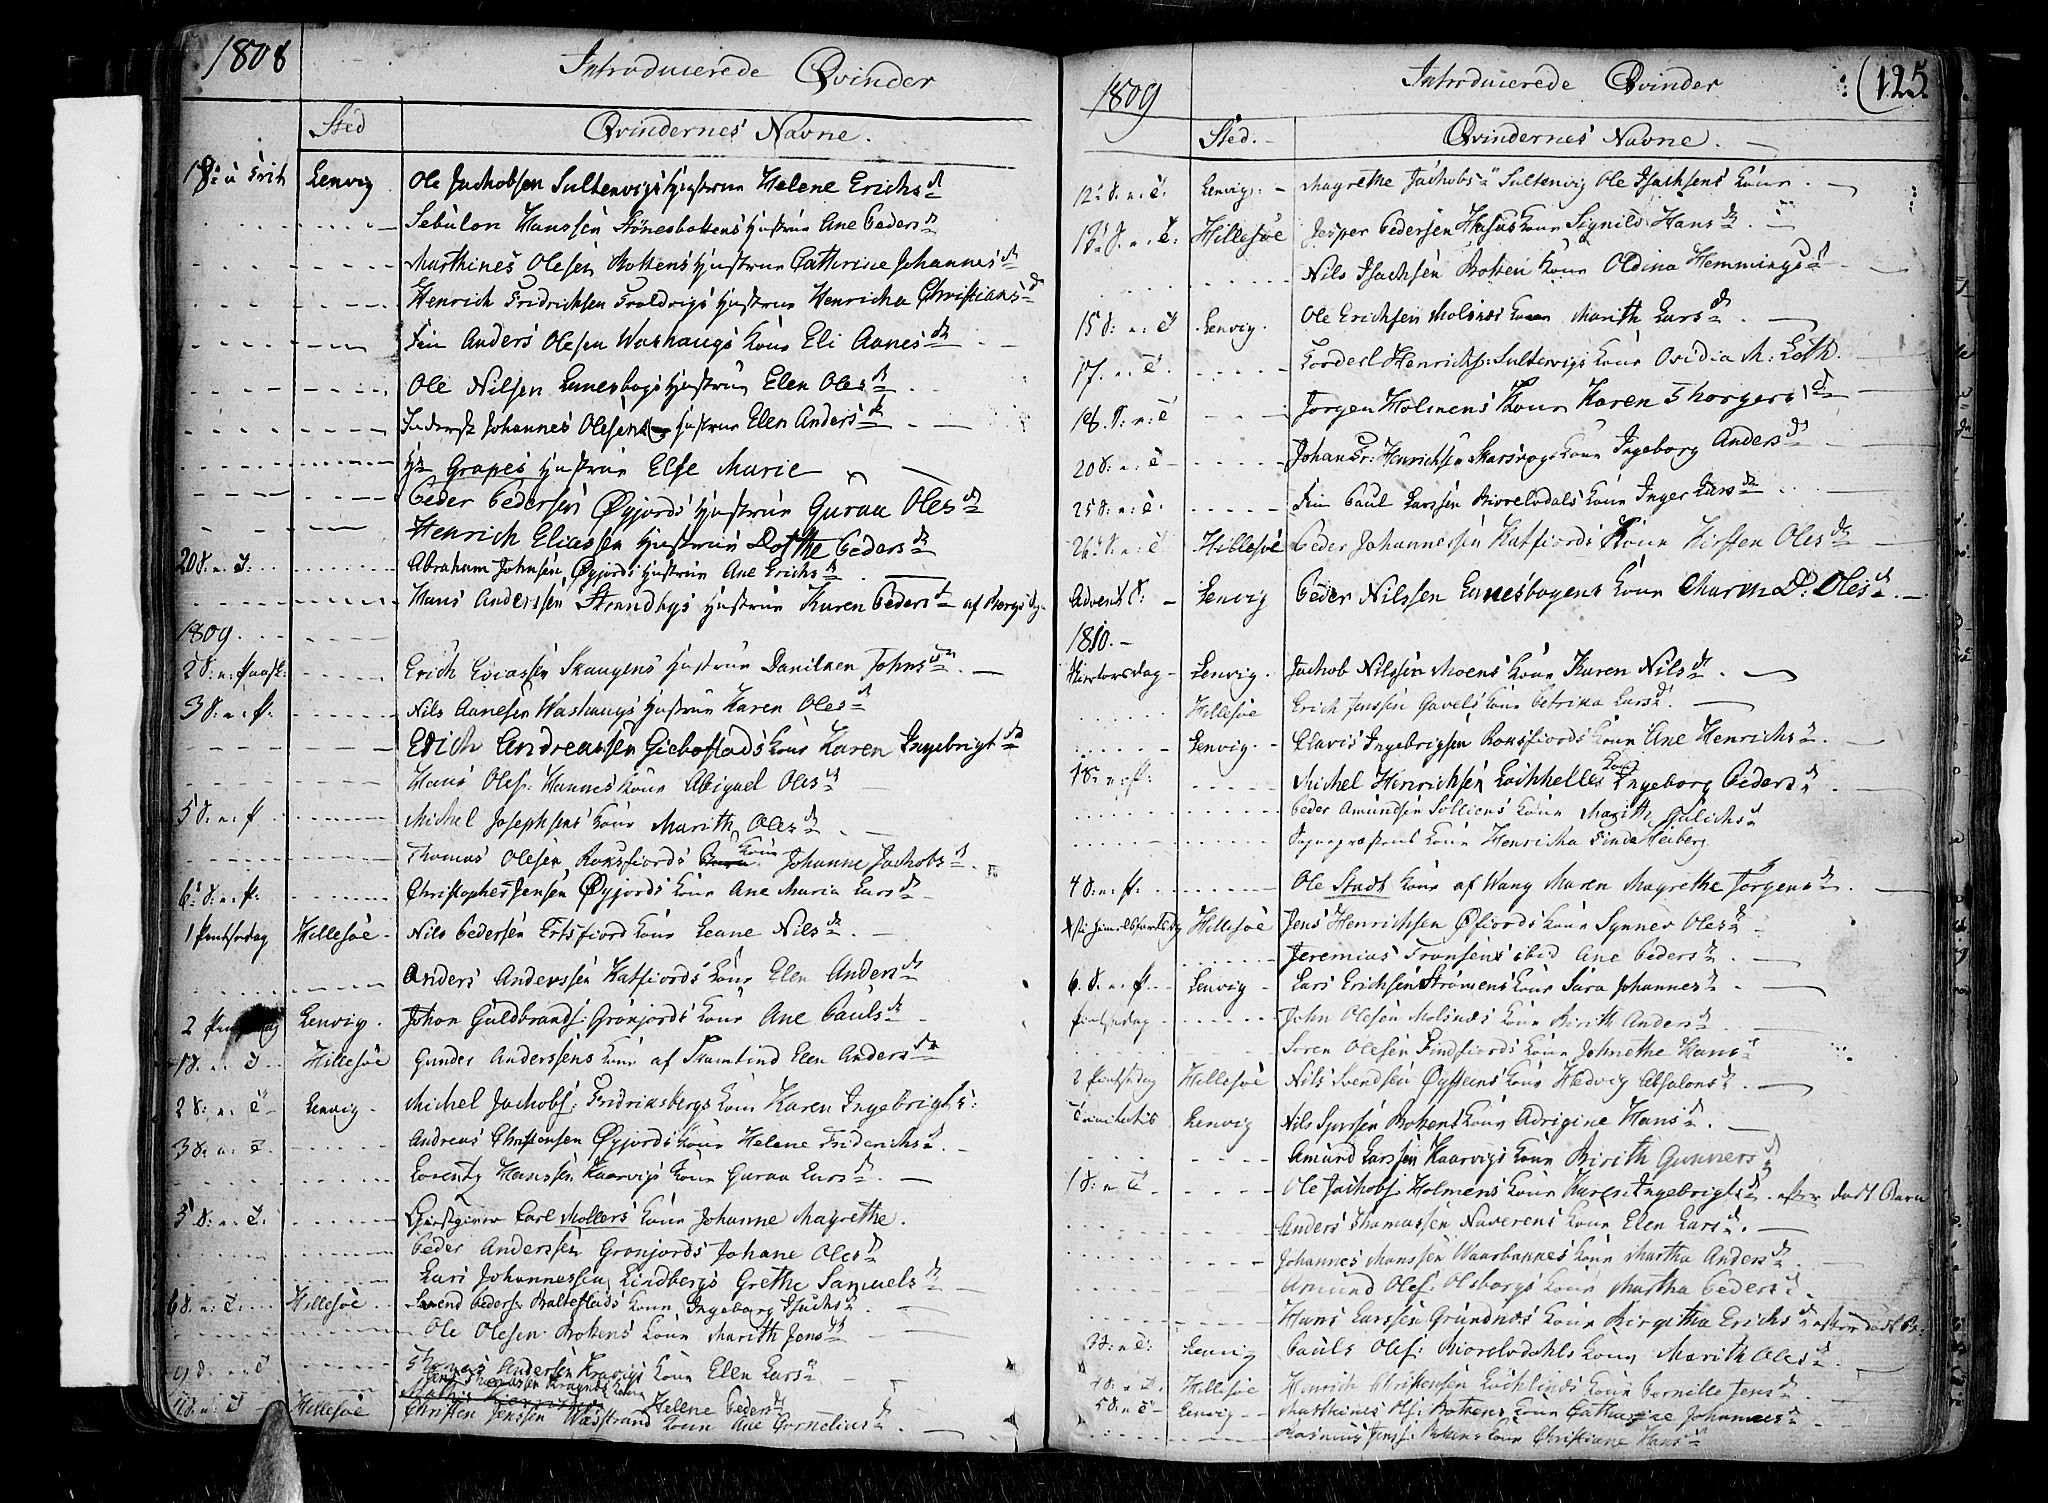 1808
Introducerede Qvinder
Sted
Qvindernes Navne.
Lenvig Ole Jachobsen Sultenvigs Hustrue Helene Erichs d
Sebulon Hanssen Stønesbottens Hustrue Ane Peders d
Marthines Olesen Bottens Hustrue Cathrine Johannes d
Henrich Fridrichsen Troldvigs Hustrue Henricha Christians d
Fin Anders Olesen Washaugs Kone Eli Aanes d
Ole Nilsen Lanesbogs Hustrue Elen Oles d
Johannes Olesens Hustrue Elen Anders d
Hr Grapes Hustrue Else Marie
Peder Pedersen Øyjords Hustrue Guraa Oles d
Henrich Eliassen Hustrue Dorthe Peders d
20 S. n. T. Abraham Johnsen Øyjords Hustrue Ane Erichs d
Hans Anderssen Strandbys Hustrue Karen Peders d af Borgs Sg
1809.
2 S. n. Paask: Erich Eviassen Skaugens Hustrue Danilken Johns d
3 S. n. P. Nils Aanesen Washaugs Hustrue Karen Oles d
Erich Andreassen Giebostads Kone Karen Ingebrigt d
Hans Oles: Hannes Kone Abigael Oles d
5 S. n. P Michel Josephsens Kone Marith Oles d
Thomas Olesen Roksfiords Kone Johanne Jachobs d
6 S. n. P. Christopher Jensen Øyjords Kone Ane Maria Lars d
1 Pintsedag Hillesøe Nils Pedersen Ertsfiord Kone Leane Nils d
Anders Anderssen Katfiords Kone Elen Anders d
2 Lenvig. Johan Guldbrands: Grønjords Kone Ane Pauls d
1 S. n. T. Hillesøe Gunder Anderssens Kone af Tramtind Elen Anders d
2 S: n. T Lenvig Michel Jachobs: Fridriksbergs Kone Karen Ingebrigts:
3 S. n. T. Andreas Christensen Øyjords Kone Helene Friderichs d
Lorentz Hanssen Kaarvigs Kone Guraa Lars d
5 S. n. T. Giestgiever Carl Møllers Kone Johanne Magrethe.
Peder Anderssen Grønjords Johane Oles d
Lars Johannessen Lindbergs Grethe Samuels d
6 S. n. T. Hillesøe Svend Peders: Baltestads Kone Ingeborg Isachs d
Ole Olesen Bottens Kone Marith Jens d
9 S. n. T Thomas Andersen Kravigs Kone Elen Lars d
Helene Peders d
S. n. T Hillesøe Christen Jenssen Wasstrand Kone Ane Cornelius d
1809
Introducerede Qvinder
125
Sted.
Qvindernes Navne.
12 S. n. T. Lenvig. Magrethe Jachobs d Sultenvig Ole Isachsens Kone
13 S. n. T: Hillesøe Jesper Pedersen Husøe Kone Signild Hans d
Nils Isachsen Botten Kone Oldina Hemmings d
15 S: n: T Lenvig. Ole Erichsen Molnæs Kone Marith Lars d
17. n. T. Torderl Henrichs: Sultenvigs Kone Ovidia M: Loth.
18. S: n: T Jørgen Holmens Kone Karen Thorgers d
20 S: n. T Johan Pr: Henrichsen Skarsvogs Kone Ingeborg Anders d
25 S: n: T. Fin Paul Larssen Biorelvdals Kone Inger Lars d
26 S. n: T Hillesøe Peder Johannessen Katfiords Kone Kirsten Oles d
Advent S: Lenvig Peder Nilssen Lanesbogens Kone Maren D. Oles d
1810.
Lenvig. Jachob Nilssen Moens Kone Karen Nils d
Hillesøe Erich Jenssen Gavels Kone Petrika Lars d.
Lenvig. Clavis Ingebrigsen Roksfiords Kone Ane Henrichs d
1 S. n. P. Michel Henrichsen Laikhelles Kone Ingeborg Peders d
Peder Amundsen Solliens Kone Marith Gulichs d
Sognepræstens Kone Henricha Finda Heiberg
4 S. n. P. Ole Stadt Kone af Wang Maren Magrethe Jørgens d
Hillesøe Jens Henrichsen Øfiords Kone Synnev Oles d
Jeremias Fransens ibid Ane Peders d
6. S. n. P. Lenvig Lars Erichsen Strømens Kone Sara Johannes d
Pintsedag John Olesen Molsnæs Kone Birith Anders d
Søren Olesen Findfiords Kone Johnethe Hans d
2 Pintsedag Hillesøe Nils Svendsen Øysteens Kone Hedvig Absalons d
Trinitatis Lenvig Nils Syvrsen Bottens Kone Adrigine Hans d
Amund Larssen Kaarvigs Kone Birith Gunners d
1 S: n. T Ole Jachobs: Holmens Kone Karen Ingebrigts d. efter dødt Barn
Anders Thomassen Naverens Kone Elen Lars d.
Johannes Monssen Waarbakkes Kone Martha Anders d
Amund Oles: Olsborgs Kone Martha Peders d
Hans Larssen Grundnæs Kone Birgitha Erichs d efter dødt B:
3 S. n T: Lenvig Pauls Oles: Biorelvdahls Kone Marith Oles d
4 S. n T Hillesøe Henrich Christensen Laiklinds Kone Pernille Jens d
5 S. n T Lenvig Marthines Ols: Bottens Kone Cathrine Johannes d
Rasmus Jenss: Botens Kone Christiane Hans d